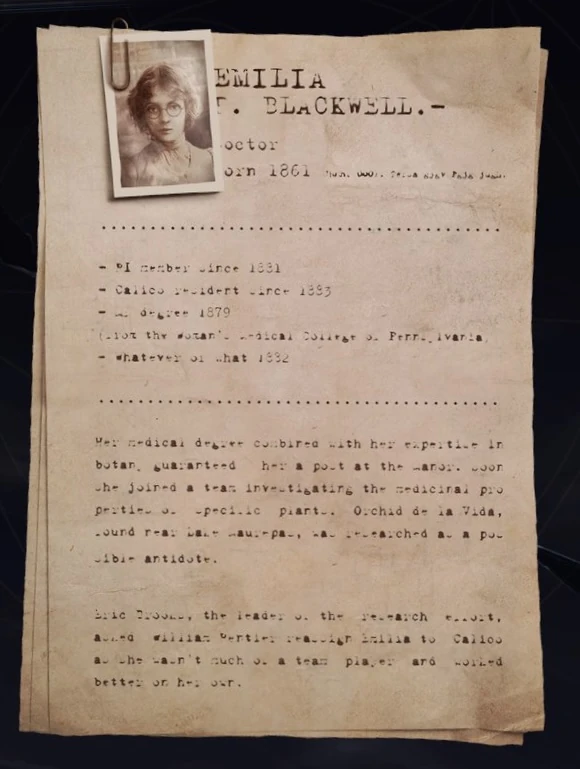 EMILIA
T. BLACKWELL.-
Doctor
Born 1861
- RI member since 1881
- Calico resident since 1883
- MD degree 1879
(from the Woman's Medical College of Pennsylvania)
- Whatever of what 1882
Her medical degree combined with her expertise in
botany guaranteed her a post at the manor. Soon
she joined a team investigating the medicinal pro
perties of specific plants. Orchid de la Vida,
found near Lake Maurepas, was researched as a pos
sible antidote.
Eric Brooks, the leader of the research effort,
asked William Pertier reassign Emilia to Calico
as she wasn't much of a team player and worked
better on her own.